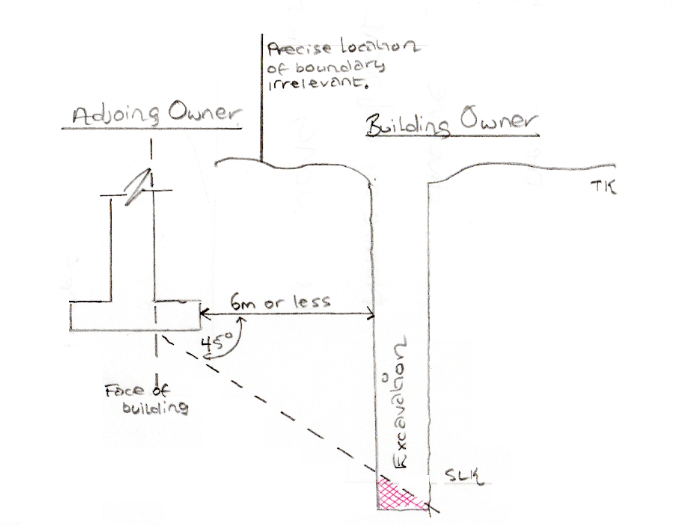 Precise location
of boundary
irrelevant.
Adjoing Owner
Building Owner
TK
6m or less
45°
Face of
building
Excavation
SLK